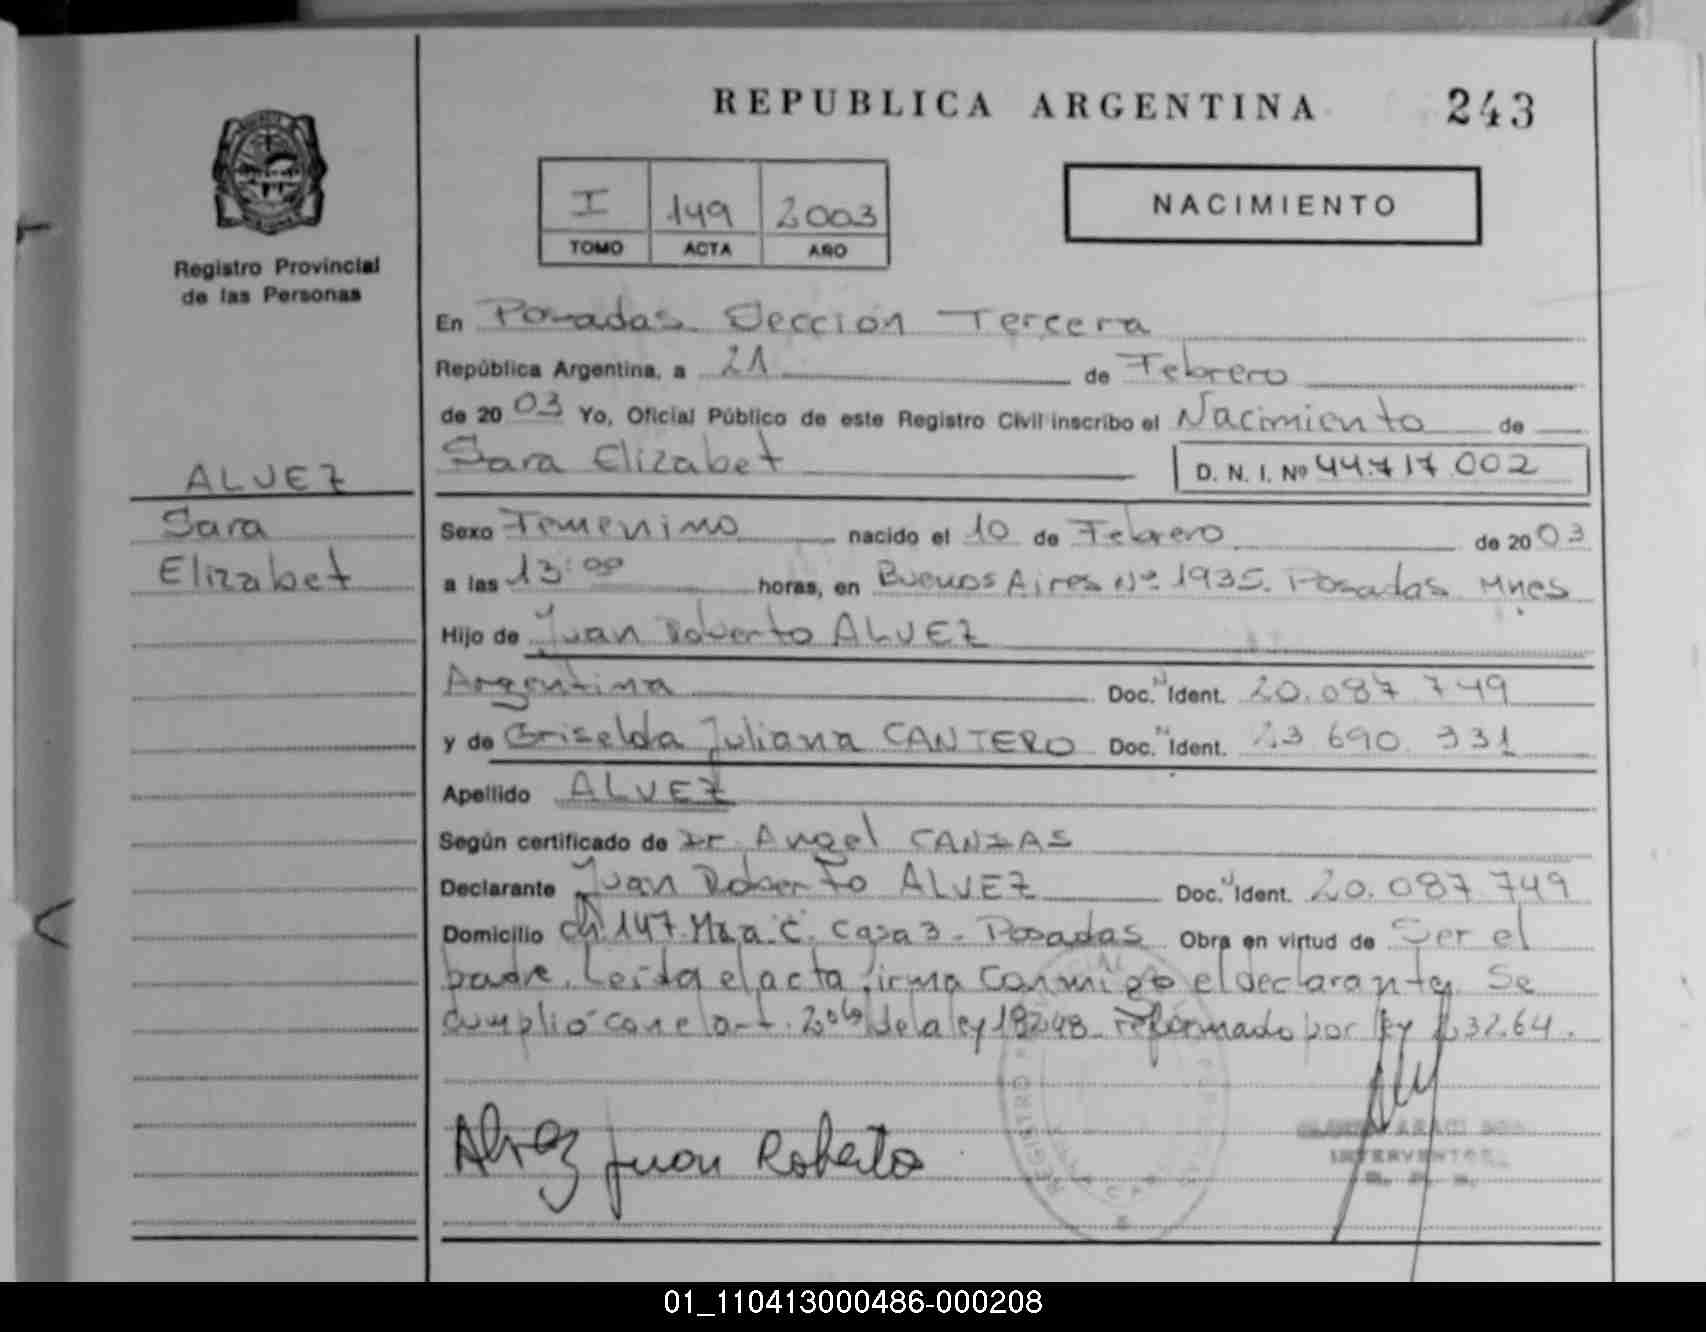 REPUBLICA ARGENTINA 243
I 149 2003
TOMO ACTA AÑO
NACIMIENTO
Registro Provincial
de las Personas
ALVEZ
Sara
Elizabet
En Posadas Sección Tercera
República Argentina, a 21 de Febrero
de 2003 Yo, Oficial Público de este Registro Civil inscribo el Nacimiento de
Sara Elizabet D. N. I. Nº 44.717.002
Sexo Femenino nacido el 10 de Febrero de 2003
a las 13:00 horas, en Buenos Aires Nº 1935. Posadas Mnes
Hijo de Juan Roberto ALVEZ
Argentina Doc. Ident. 20.087.749
y de Griselda Juliana CANTERO Doc. Ident. 23.690.331
Apellido ALVEZ
Según certificado de Dr. Angel
Declarante Juan Roberto ALVEZ Doc. Ident. 20.087.749
Domicilio ch 147 Mza "C" Casa 3 - Posadas Obra en virtud de Ser el
padre. Leída el acta firma conmigo el declarante. Se
cumplió con el art. de la ley 18248 reformado por ley
Alvez Juan Roberto
REGISTRO
INTERVENTOR
01_110413000486-000208